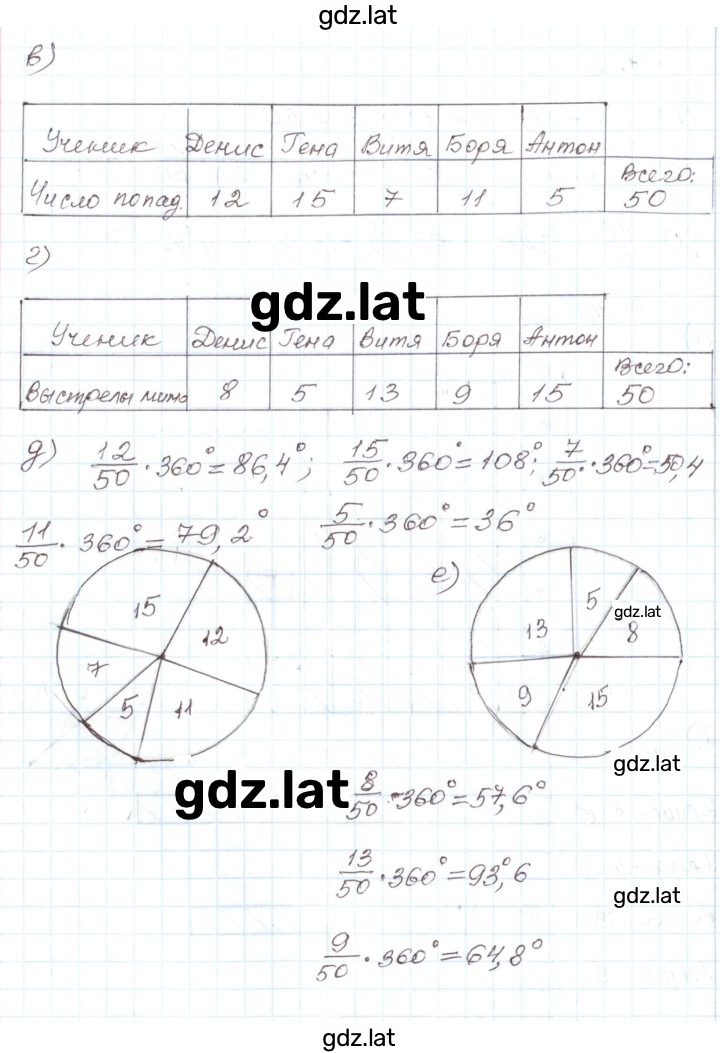 gdz.lat
в)
Ученик Денис Гена Витя Боря Антон
Число попад. 12 15 7 11 5 Всего: 50
г)
gdz.lat
Ученик Денис Гена Витя Боря Антон
Выстрелы мимо 8 5 13 9 15 Всего: 50
д) 12/50 · 360° = 86,4°; 15/50 · 360° = 108°; 7/50 · 360° = 50,4
11/50 · 360° = 79,2° 5/50 · 360° = 36°
е)
15 12 7 5 11
13 5 8 9 15
gdz.lat
gdz.lat
gdz.lat
8/50 · 360° = 57,6°
13/50 · 360° = 93°,6
gdz.lat
9/50 · 360° = 64,8°
gdz.lat